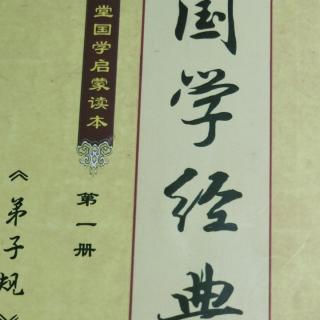 国学经典
堂国学启蒙读本
第一册
《弟子规》